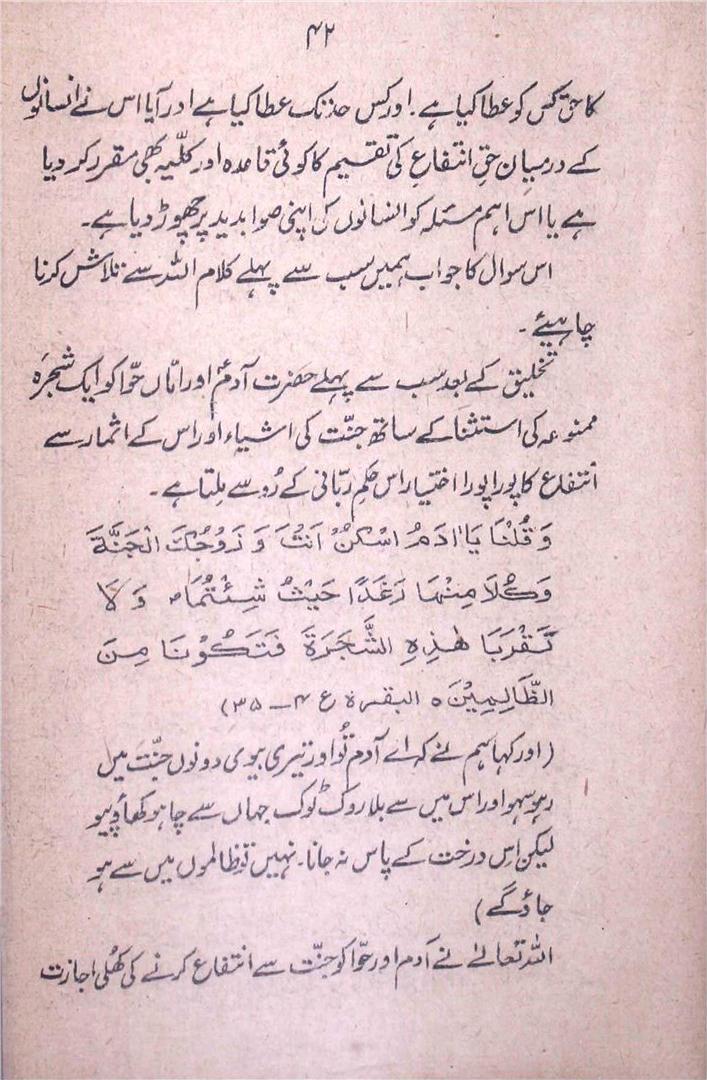 ۴۲
کا حق کس کو عطا کیا ہے۔ اور کس حد تک عطا کیا ہے اور آیا اس نے انسانوں
کے درمیان حقِ انتفاع کی تقسیم کا کوئی قاعدہ اور کلّیہ بھی مقرر کر دیا
ہے یا اس اہم مسئلہ کو انسانوں کی اپنی صوابدید پر چھوڑ دیا ہے۔
اس سوال کا جواب ہمیں سب سے پہلے کلام اللہ سے تلاش کرنا
چاہیئے۔
تخلیق کے بعد سب سے پہلے حضرت آدمؑ اور امّاں حوّا کو ایک شجرہ
ممنوعہ کی استثنا کے ساتھ جنّت کی اشیاء اور اس کے اثمار سے
انتفاع کا پورا پورا اختیار اس حکمِ ربّانی کے رُو سے مِلتا ہے۔
وَ قُلْنَا یَاٰادَمُ اسْکُنْ اَنْتَ وَ زَوْجُکَ الْجَنَّةَ
وَکُلَا مِنْهَا رَغَدًا حَیْثُ شِئْتُمَا وَ لَا
تَقْرَبَا هٰذِهِ الشَّجَرَةَ فَتَکُوْنَا مِنَ
الظَّالِمِیْنَ ه البقرة ع ۴ــ۳۵)
(اور کہا ہم نے کہ اے آدم تُو اور تیری بیوی دونوں جنّت میں
رہو سہو اور اس میں سے بلا روک ٹوک جہاں سے چاہو کھاؤ پیو
لیکن اِس درخت کے پاس نہ جانا۔ نہیں تو ظالموں میں سے ہو
جاؤ گے)
اللہ تعالےٰ نے آدم اور حوّا کو جنّت سے انتفاع کرنے کی کھُلی اجازت